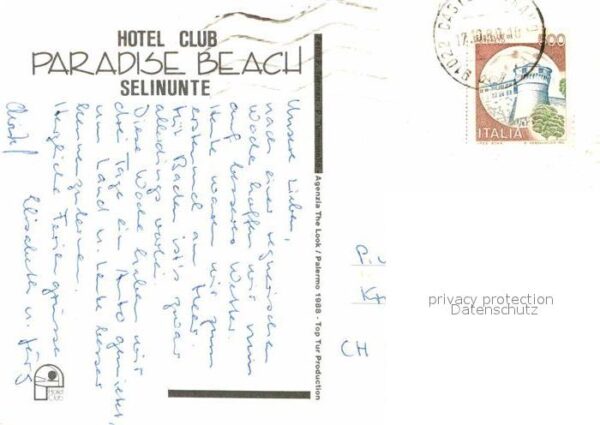 HOTEL CLUB
PARADISE BEACH
SELINUNTE
Unsere Lieben,
nach einer regnerischen
Woche hoffen wir nun
auf besseres Wetter.
Heute waren wir zum
erstenmal am Meer.
Mit Baden ist's zwar
allerdings vorbei.
Diese Woche haben wir
drei Tage ein Auto gemietet,
um Land u. Leute besser
kennenzulernen.
Herzliche Feriengrüsse
Elisabeth u. Jürg
Agenzia The Look / Palermo 1988 - Top Tur Production
500
ITALIA
91022
CH
privacy protection
Datenschutz
HOTEL
CLUB